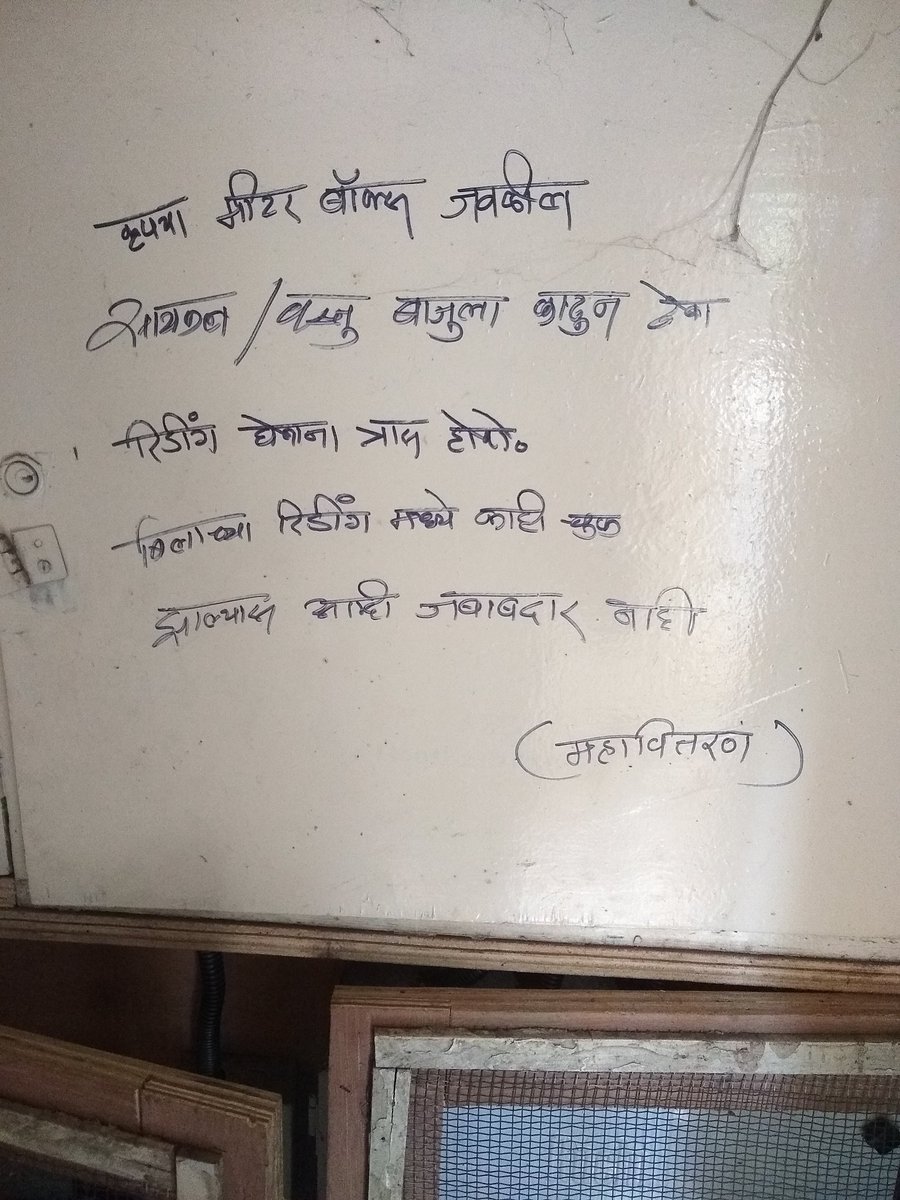 कृपया मीटर बॉक्स जवळील
सायकल / वस्तु बाजुला काढुन ठेवा
रिडींग घेताना त्रास होतो.
बिलाच्या रिडींग मध्ये काही चुक
झाल्यास आम्ही जबाबदार नाही
(महावितरण)